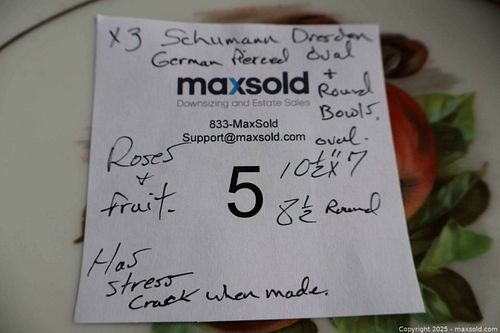 x3 Schumann Dresden
German Pierced Oval
+
Round
Bowls.
maxsold
Downsizing and Estate Sales
833-MaxSold
Support@maxsold.com
oval.
10 1/2" x 7
8 1/2 Round
Roses
+
fruit.
5
Has
stress
crack when made.
Copyright 2025 - maxsold.com